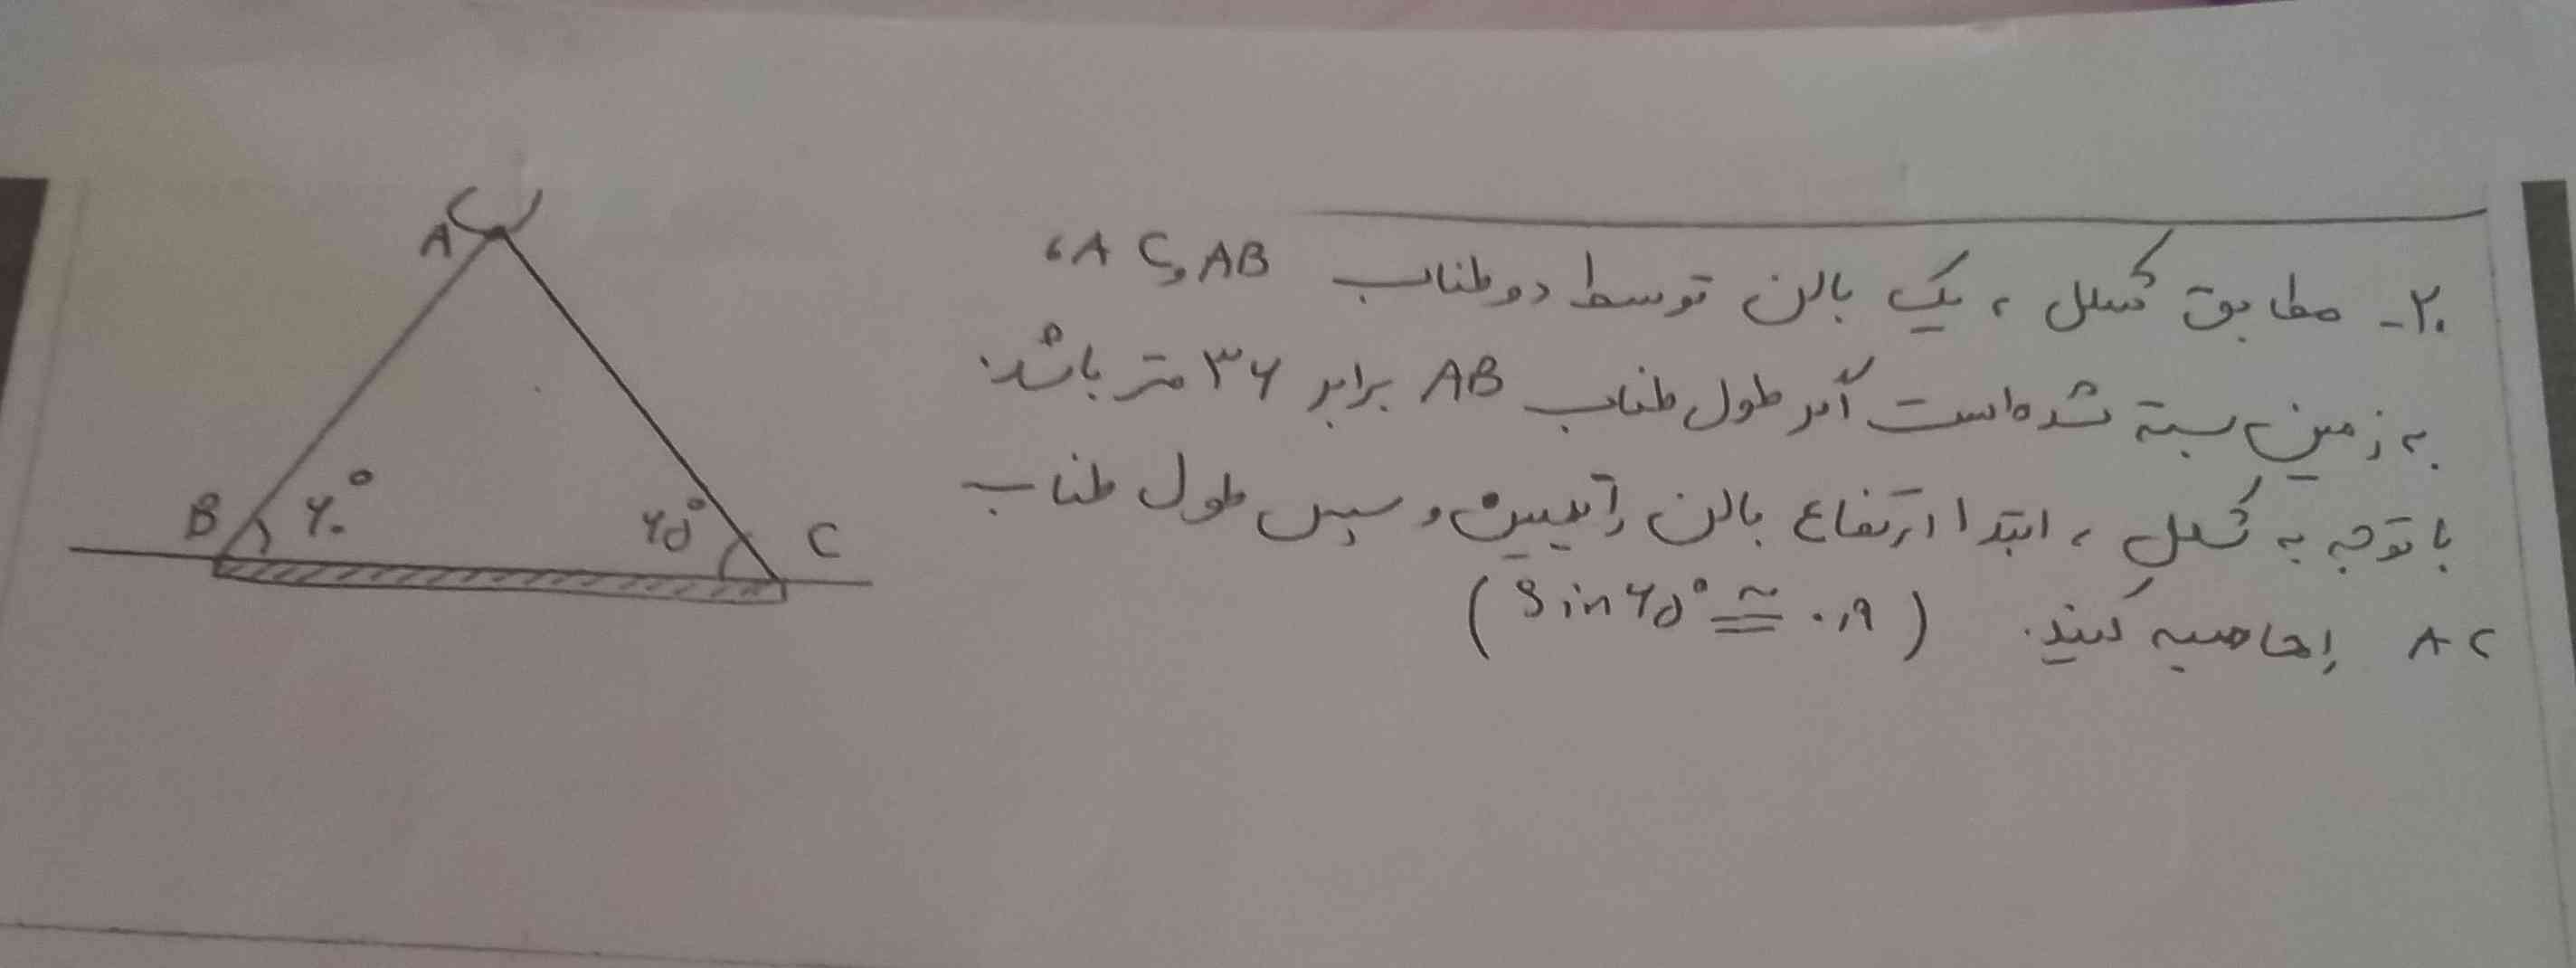 ۲۰- مطابق شکل، یک بالن توسط دو طناب AB و AC،
به زمین بسته شده است اگر طول طناب AB برابر ۳۶ متر باشد.
با توجه به شکل، ابتدا ارتفاع بالن را تعیین و سپس طول طناب
AC را محاصبه کنید. (sin ۶۵° ≅ ۰,۹)
A
B ۶۰° ۶۵° C